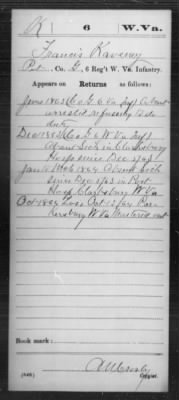 K | 6 | W. Va.
Francis Kaverny
Pvt., Co. G, 6 Reg't W. Va. Infantry.
Appears on Returns as follows:
June 1863 (Co G 6 Va Inf) Absent
arrested refusing to do
duty
Dec 1863 (Co G 6 W Va Inf)
Absent Sick in Clarksburg
Hosp since Dec 1863
Jan to 1864 Absent Sick
since Dec 1863 in Post
Hosp Clarksburg W Va
Oct 1864 Loss Oct 1864 Par-
kersburg W Va Mustered out
Book mark:
(546)
Copyist.